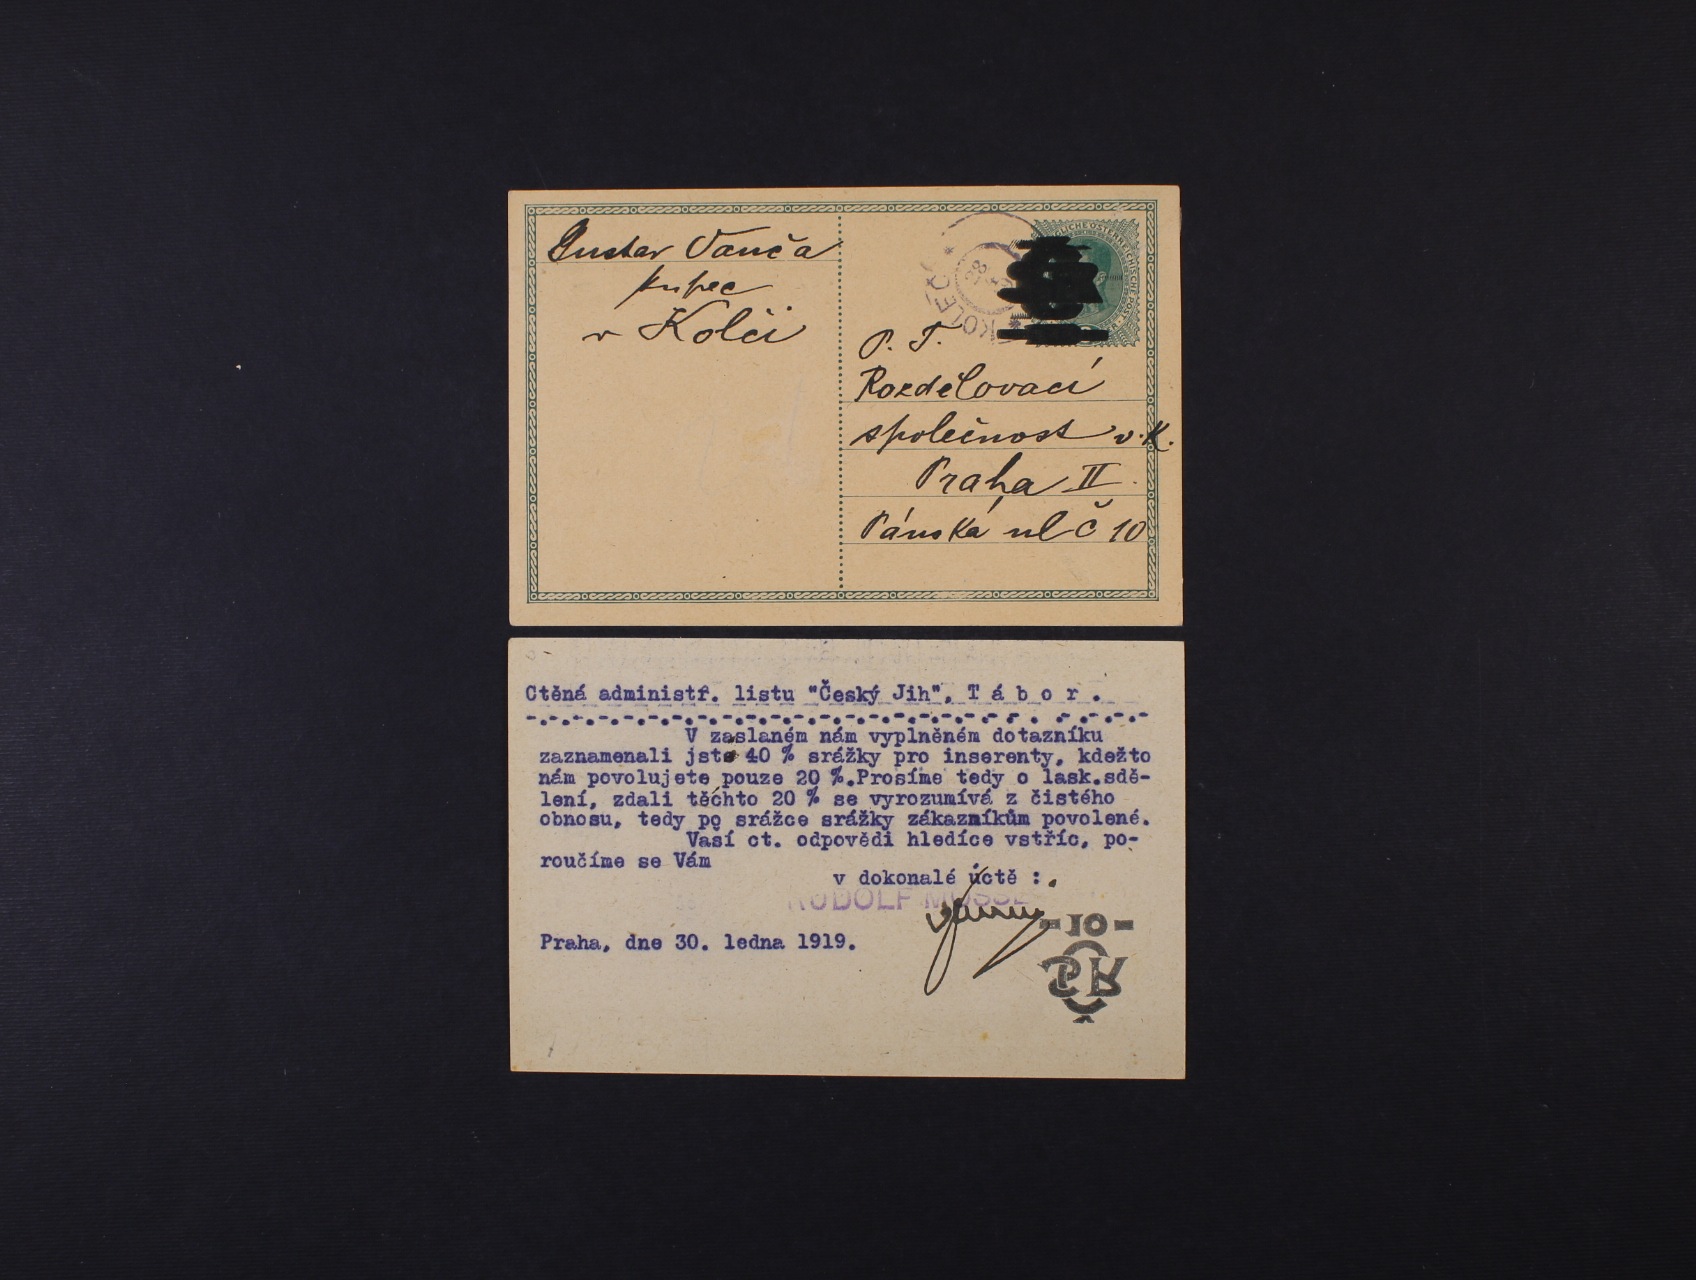 Gustav Vanča
kupec
v Kolči
KOLEČ
28
LICHE ÖSTERREICHISCHE POST
P. T.
Rozdělovací
společnost v. K.
Praha II.
Pánská ul Č 10
Ctěná administř. listu "Český Jih", T á b o r .
V zaslaném nám vyplněném dotazníku
zaznamenali jste 40 % srážky pro inserenty, kdežto
nám povolujete pouze 20 %.Prosíme tedy o lask.sdě-
lení, zdali těchto 20 % se vyrozumívá z čistého
obnosu, tedy po srážce srážky zákazníkům povolené.
Vaší ct. odpovědi hledíce vstříc, po-
roučíme se Vám
v dokonalé úctě :
RUDOLF MOSSE
-10-
Praha, dne 30. ledna 1919.
ČSR